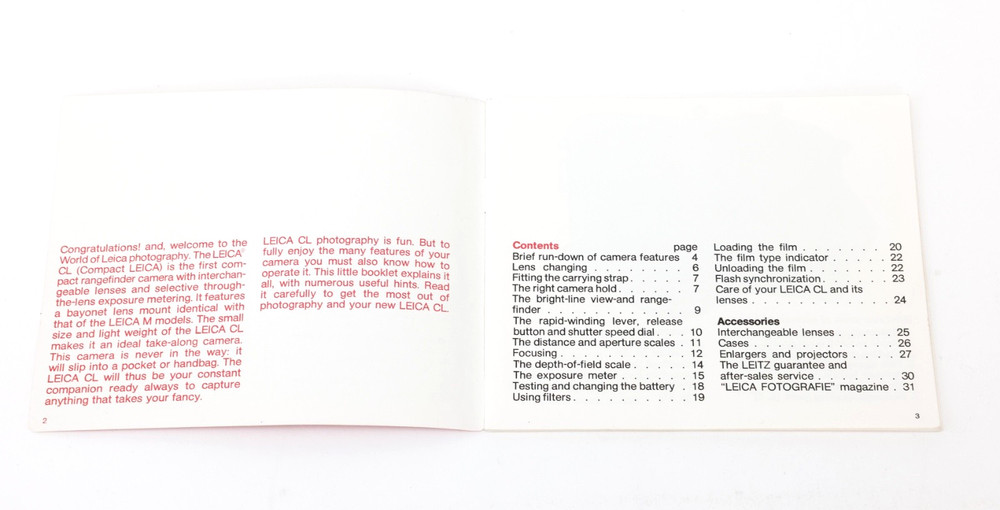 Congratulations! and, welcome to the
World of Leica photography. The LEICA®
CL (Compact LEICA) is the first com-
pact rangefinder camera with interchan-
geable lenses and selective through-
the-lens exposure metering. It features
a bayonet lens mount identical with
that of the LEICA M models. The small
size and light weight of the LEICA CL
makes it an ideal take-along camera.
This camera is never in the way: it
will slip into a pocket or handbag. The
LEICA CL will thus be your constant
companion ready always to capture
anything that takes your fancy.
LEICA CL photography is fun. But to
fully enjoy the many features of your
camera you must also know how to
operate it. This little booklet explains it
all, with numerous useful hints. Read
it carefully to get the most out of
photography and your new LEICA CL.
2
Contents page
Brief run-down of camera features 4
Lens changing . . . . . . . . 6
Fitting the carrying strap . . . . . 7
The right camera hold . . . . . . 7
The bright-line view-and range-
finder . . . . . . . . . . . . 9
The rapid-winding lever, release
button and shutter speed dial . . . 10
The distance and aperture scales . 11
Focusing . . . . . . . . . . . 12
The depth-of-field scale . . . . . 14
The exposure meter . . . . . . 15
Testing and changing the battery . 18
Using filters . . . . . . . . . . 19
Loading the film . . . . . . . 20
The film type indicator . . . . . 22
Unloading the film . . . . . . . 22
Flash synchronization . . . . . . 23
Care of your LEICA CL and its
lenses . . . . . . . . . . . . 24
Accessories
Interchangeable lenses . . . . . 25
Cases . . . . . . . . . . . . 26
Enlargers and projectors . . . . 27
The LEITZ guarantee and
after-sales service . . . . . . . 30
"LEICA FOTOGRAFIE" magazine . 31
3